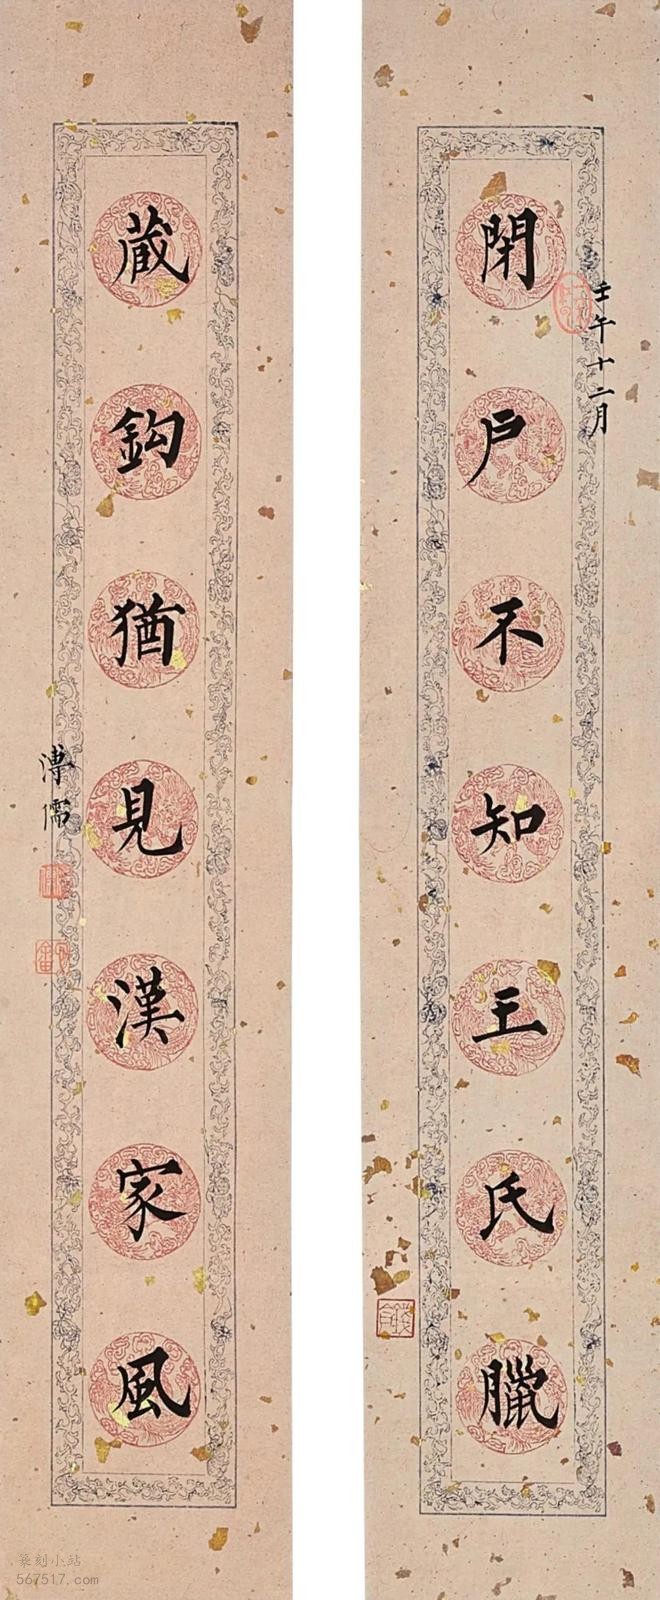 壬午十二月
閉戶不知王氏臘
蔵鈎猶見漢家風
溥儒
篆刻小站
567517.com